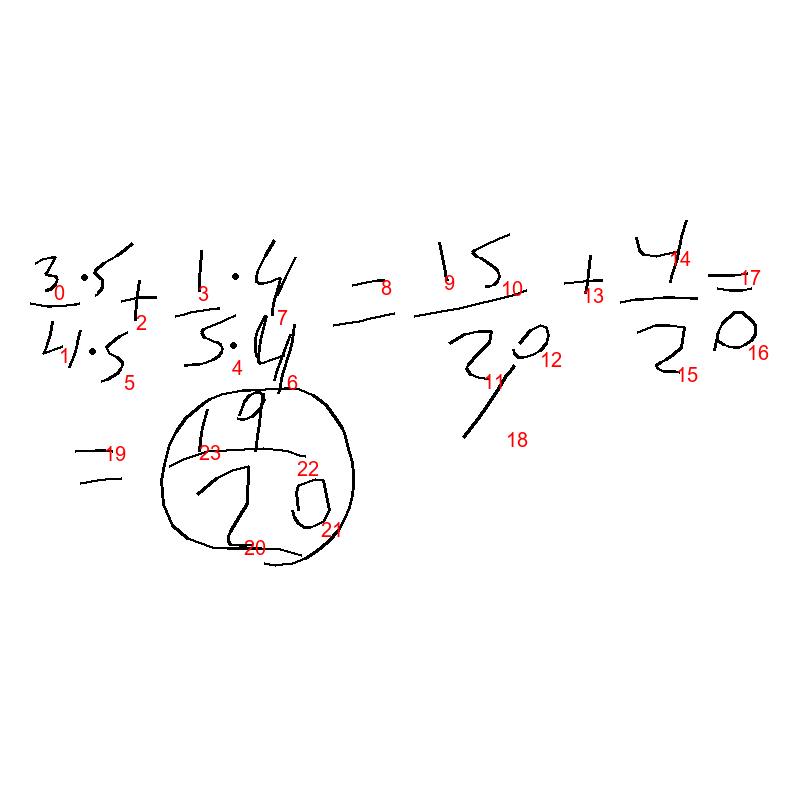 3·5/4·5 + 1·4/5·4 = 15/20 + 4/20 =
= 19/20
0 1 2 3 4 5 6 7 8 9 10 11 12 13 14 15 16 17 18 19 20 21 22 23